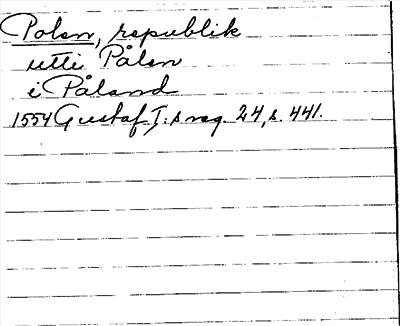 Polen, republik
utti Pålen
i Påland
1554 Gustaf I:s reg. 24, s. 441.